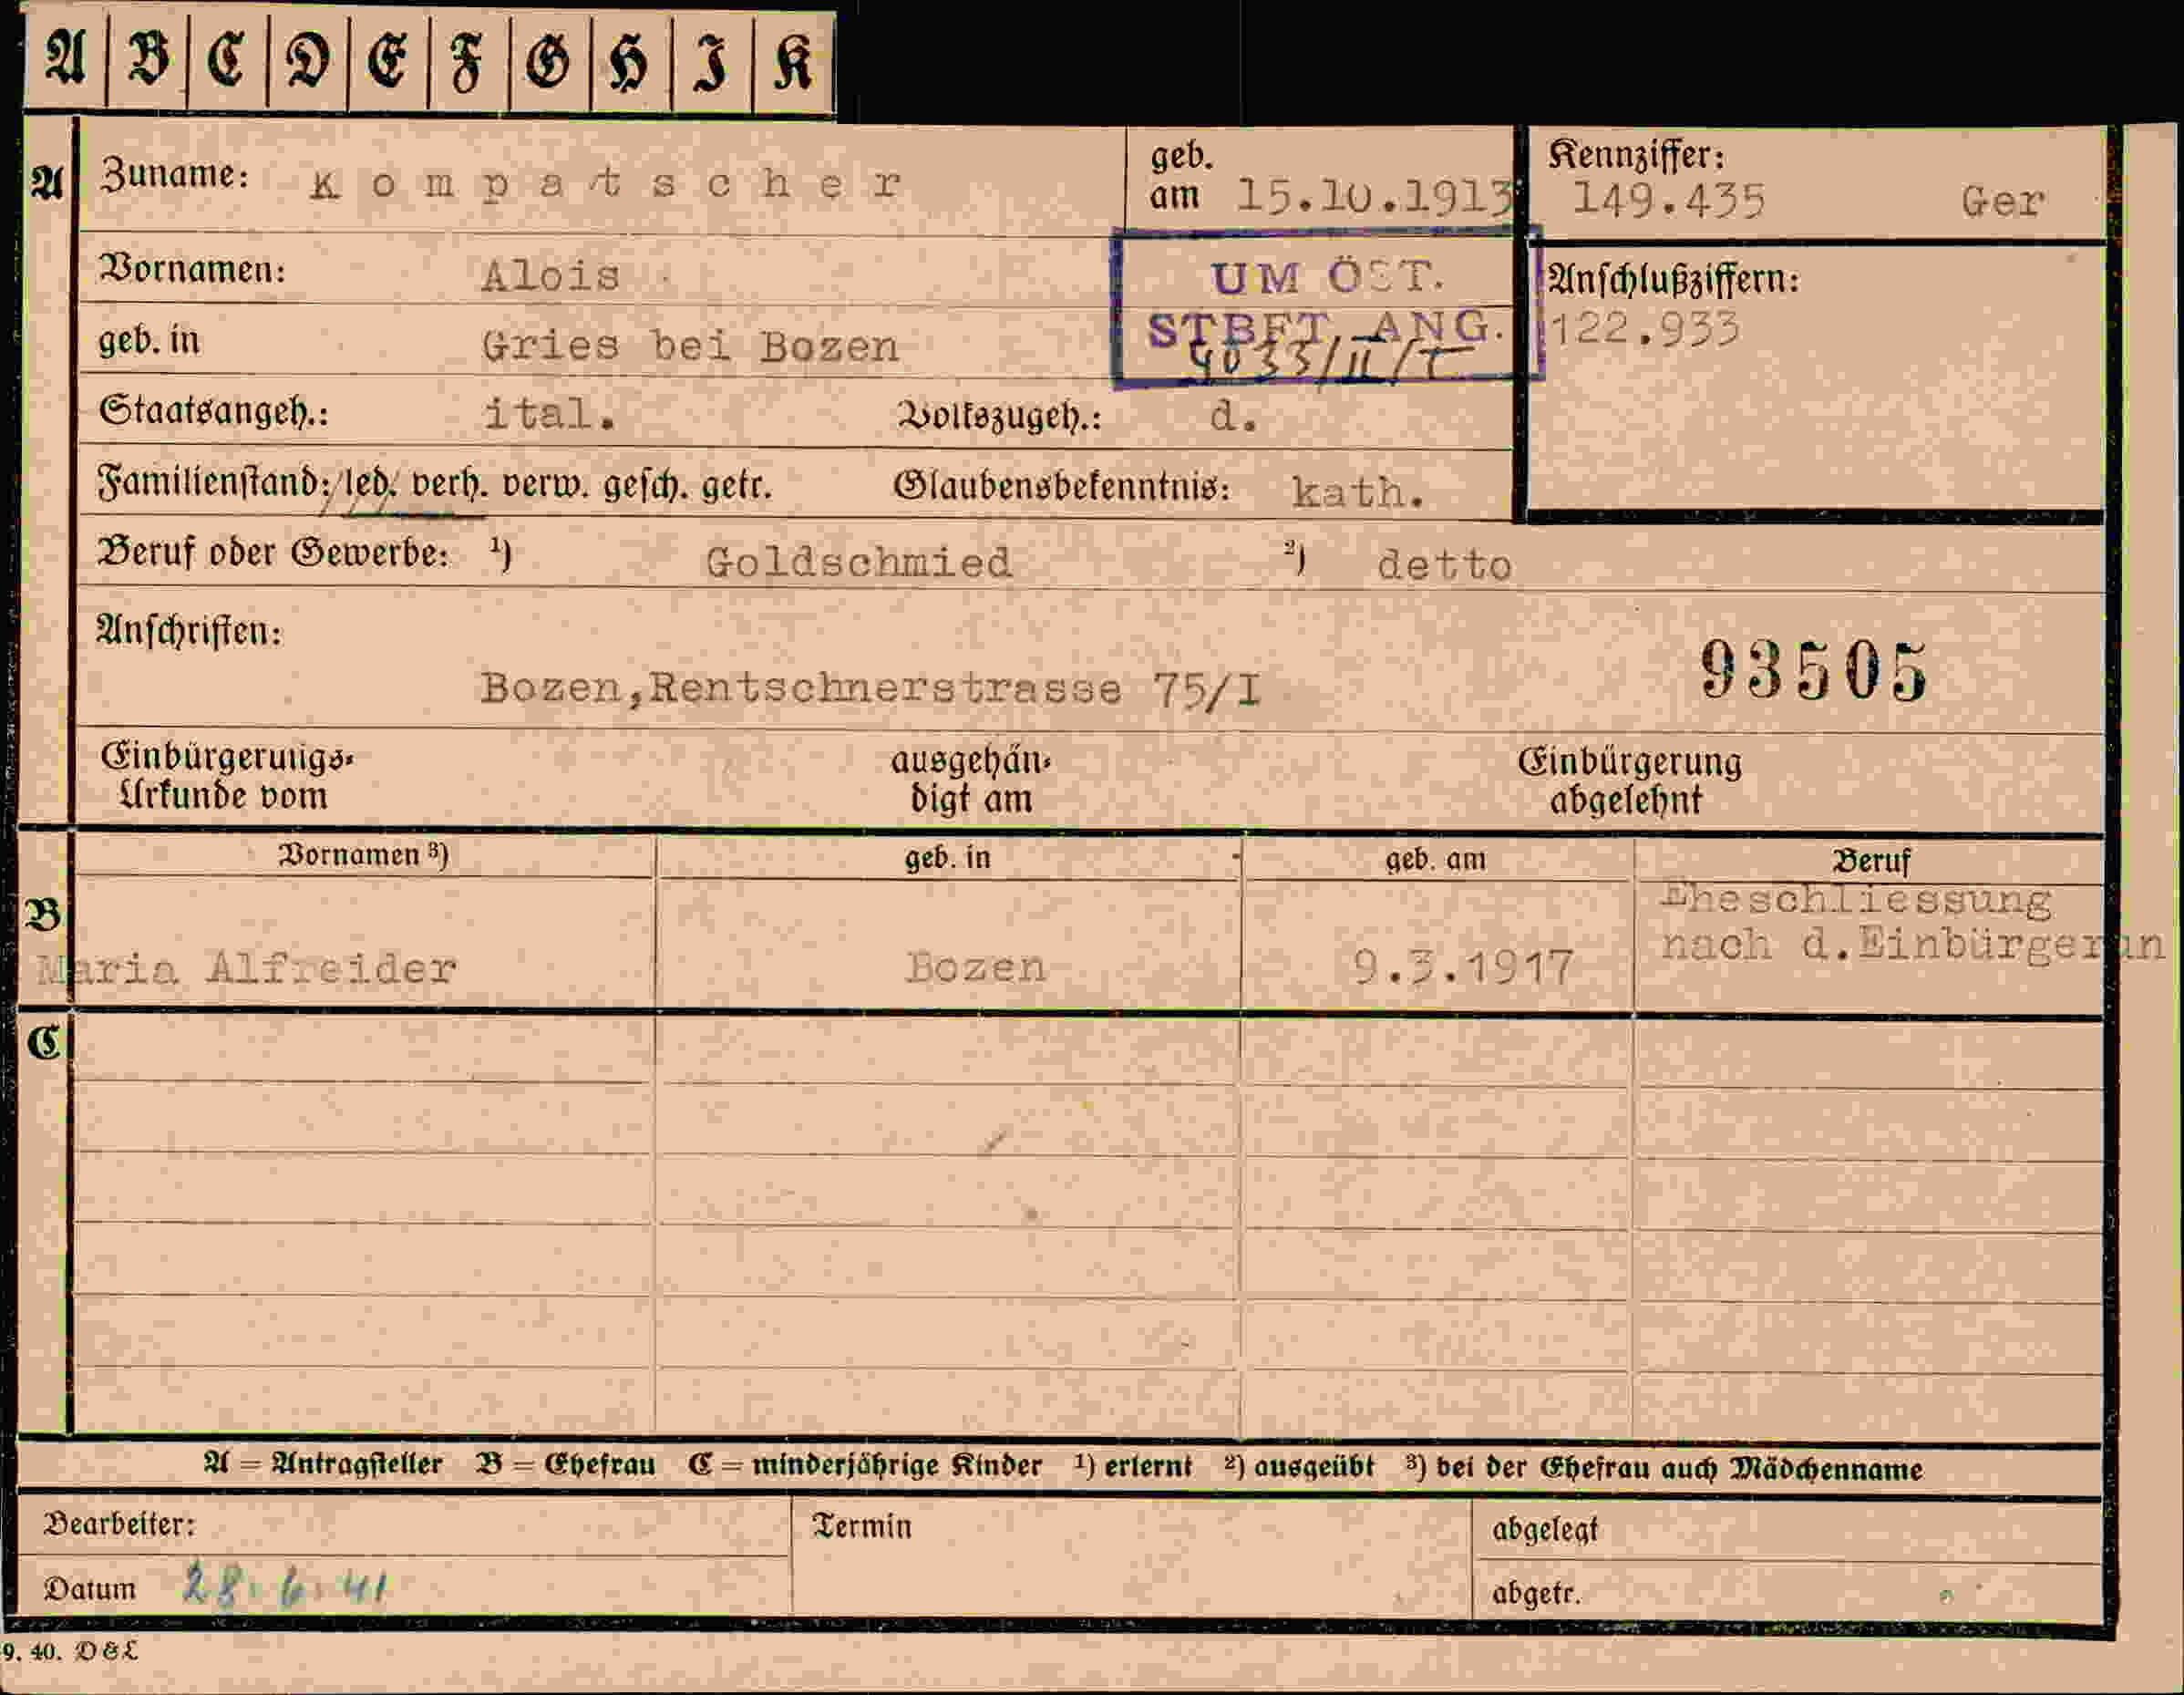 A B C D E F G H I K
A Zuname: Kompatscher geb. am 15.10.1913 Kennziffer: 149.435 Ger
Vornamen: Alois UM ÖST. Anschlußziffern:
geb. in Gries bei Bozen STBFT. ANG. 122.933
4033/II/T
Staatsangeh.: ital. Volkszugeh.: d.
Familienstand: led. verh. verw. gesch. getr. Glaubensbekenntnis: kath.
Beruf oder Gewerbe: ¹) Goldschmied ²) detto
Anschriften:
93505
Bozen,Rentschnerstrasse 75/I
Einbürgerungs- ausgehän- Einbürgerung
Urkunde vom digt am abgelehnt
Vornamen ³) geb. in geb. am Beruf
B Eheschliessung
nach d.Einbürgerun
Maria Alfreider Bozen 9.3.1917
C
A = Antragsteller B = Ehefrau C = minderjährige Kinder ¹) erlernt ²) ausgeübt ³) bei der Ehefrau auch Mädchenname
Bearbeiter: Termin abgelegt
Datum 28.6.41 abgetr.
9. 40. D & L